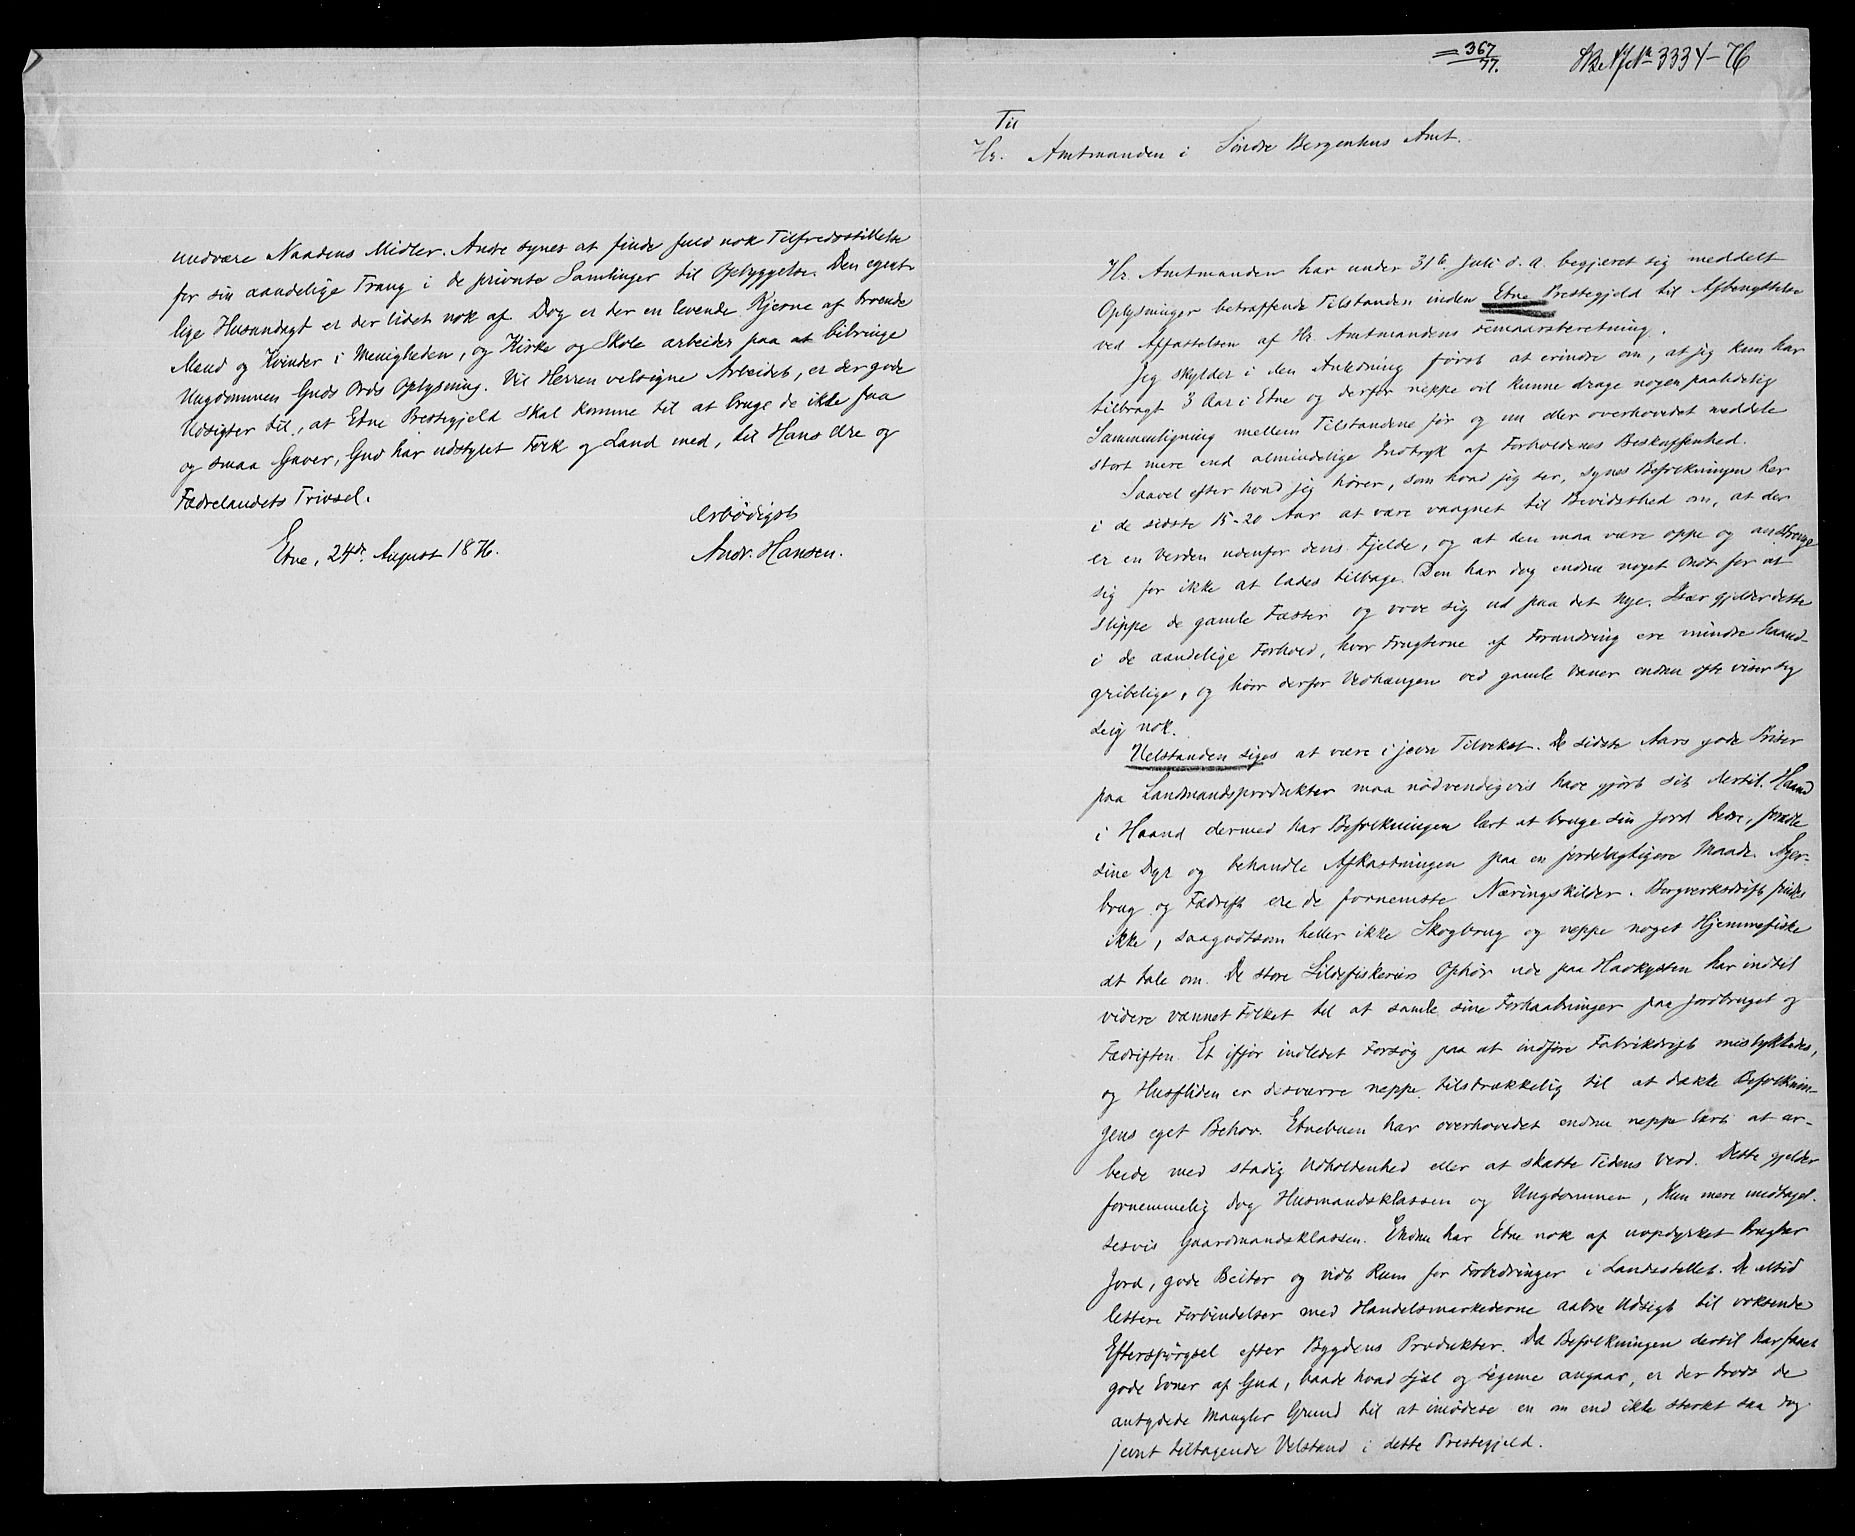 = 367/77.
3334-76
Til
Hr. Amtmanden i Söndre Bergenhus Amt.
Hr. Amtmanden har under 31te Juli d. A. begjæret sig meddelt
Oplysninger betræffende Tilstanden inden Etne Prestegjeld til Afbenyttelse
ved Affattelsen af Hr. Amtmandens Femaarsberetning.
Jeg skylder i den Anledning först at erindre om, at jeg kun har
tilbragt 3 Aar i Etne og derfor neppe vil kunne drage nogen paalidelig
Sammenligning mellem Tilstandene för og nu eller overhovedet meddele
stort mere end almindelige Indtryk af Forholdenes Beskaffenhed.
Saavel efter hvad jeg hörer, som hvad jeg ser, synes Befolkningen her
i de sidste 15-20 Aar at være vaagnet til Bevidsthed om, at der
er en Verden udenfor dens Fjelde, og at den maa være oppe og anstrenge
sig for ikke at lades tilbage. Den har dog endnu noget ondt for at
slippe de gamle Fæster og vove sig ud paa det nye. Især gjelder dette
i de aandelige Forhold, hvor Frugterne af Forandring ere mindre haand-
gribelige, og hvor derfor Vedhængen ved gamle Vaner endnu ofte viser sig
seig nok.
Velstanden siges at være i jevn Tilvekst. De sidste Aars gode Priser
paa Landmandsprodukter maa nödvendigvis have gjört sit dertil. Haand
i Haand dermed har Befolkningen lært at bruge sin Jord bedre, fremde
sine Dyr og behandle Afkastningen paa en fordelagtigere Maade. Ager-
brug og Fædrift ere de fornemste Næringskilder. Bergverksdrift findes
ikke, saagodtsom heller ikke Skogbrug og neppe noget Hjemmefiske
at tale om. De store Sildefiskeriers Ophör ude paa Havkysten har indtil
videre vænnet Folket til at samle sine Forhaabninger paa Jordbruget og
Fædriften. Et ifjor indledet Forsög paa at indföre Fabrikdrift mislykkedes,
og Husfliden er desværre neppe tilstrækkelig til at dække Befolknin-
gens eget Behov. Etnebuen har overhovedet endnu neppe lært at ar-
beide med stadig Udholdenhed eller at skatte Tidens Verd. Dette gjelder
fornemmelig dog Husmandsklassen og Ungdommen, kun mere undtagel-
sesvis Gaardmandsklassen. Endnu har Etne nok af uopdyrket brugbar
Jord, gode Beiter og vidt Rum for Forbedringer i Landsstellet. De altid
lettere Forbindelser med Handelsmarkederne aabne Udsigt til voksende
Efterspörgsel efter Bygdens Produkter. Da Befolkningen dertil har faaet
gode Evner af Gud, baade hvad Sjæl og Legeme angaar, er der trods de
antydede Mangler Grund til at imödese en om end ikke sterkt saa dog
jevnt tiltagende Velstand i dette Prestegjeld.
undvære Naadens Midler. Andre synes at finde fuld nok Tilfredsstillelse
for sin aandelige Trang i de private Samlinger til Opbyggelse. Den egent-
lige Husandagt er der lidet nok af. Dog er der en levende Kjerne af troende
Mænd og Kvinder i Menigheden, og Kirke og Skole arbeider paa at bibringe
Ungdommen Guds Ords Oplysning. Vil Herren velsigne Arbeidet, er der gode
Udsigter til, at Etne Prestegjeld skal komme til at bruge de ikke faa
og smaa Gaver, Gud har udstyret Folk og Land med, til Hans Ære og
Fædrelandets Trivsel.
Etne, 24de August 1876.
Ærbödigst
Andr. Hansen.